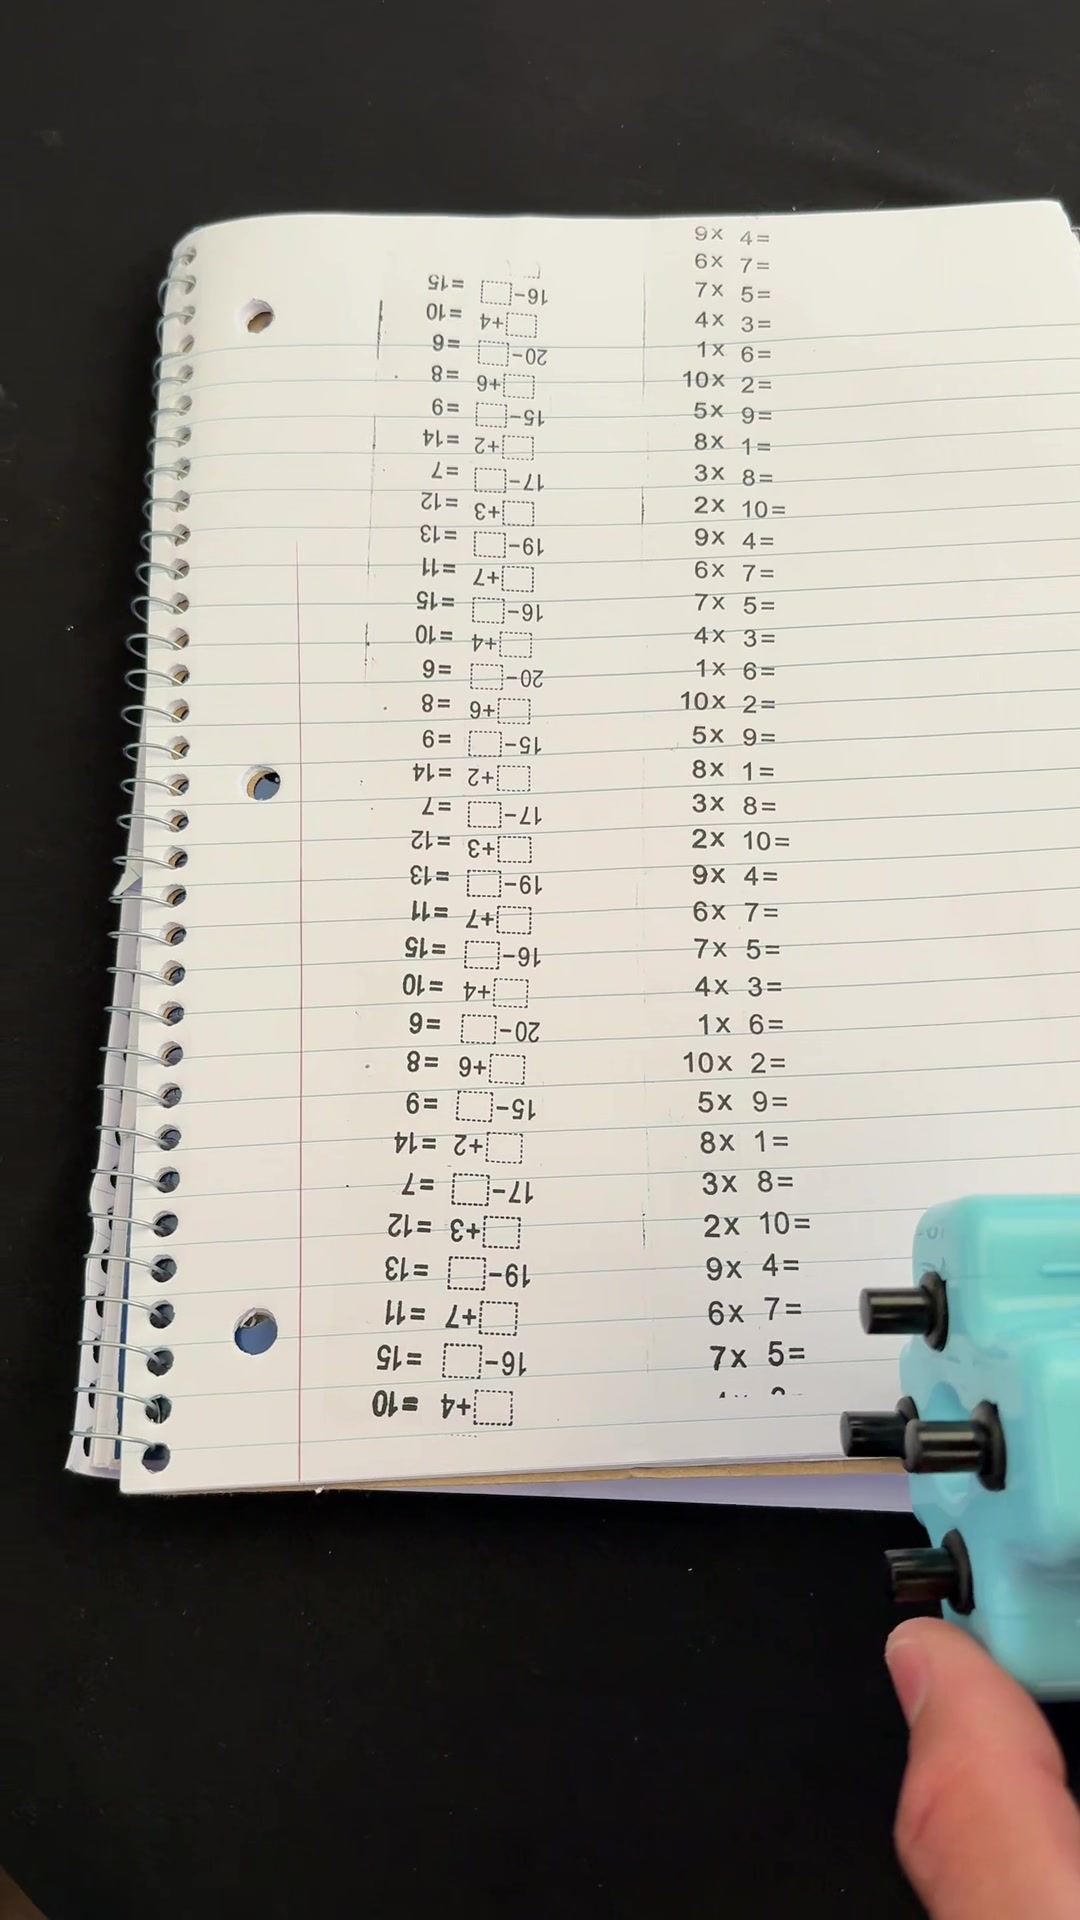 □+4 =10
16-□ =15
□+7 =11
19-□ =13
□+3 =12
17-□ =7
□+2 =14
15-□ =9
□+6 =8
20-□ =6
□+4 =10
16-□ =15
□+7 =11
19-□ =13
□+3 =12
17-□ =7
□+2 =14
15-□ =9
□+6 =8
20-□ =6
□+4 =10
16-□ =15
□+7 =11
19-□ =13
□+3 =12
17-□ =7
□+2 =14
15-□ =9
□+6 =8
20-□ =6
□+4 =10
16-□ =15
9x 4=
6x 7=
7x 5=
4x 3=
1x 6=
10x 2=
5x 9=
8x 1=
3x 8=
2x 10=
9x 4=
6x 7=
7x 5=
4x 3=
1x 6=
10x 2=
5x 9=
8x 1=
3x 8=
2x 10=
9x 4=
6x 7=
7x 5=
4x 3=
1x 6=
10x 2=
5x 9=
8x 1=
3x 8=
2x 10=
9x 4=
6x 7=
7x 5=